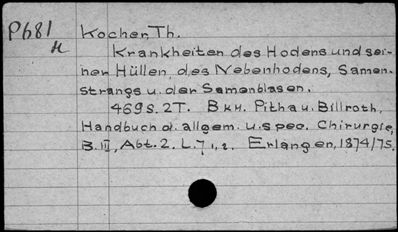 P681 Kocher, Th.
Krankheiten des Hodens und sei-
ner Hüllen, des Nebenhodens, Samen-
strangs u. der Samenblasen.
469 S. 2T. Bкн. Pitha u. Billroth,
Handbuch d. allgem. u. spec. Chirurgie,
B. III, Abt. 2. L. 7 1,2. Erlangen, 1874/75.